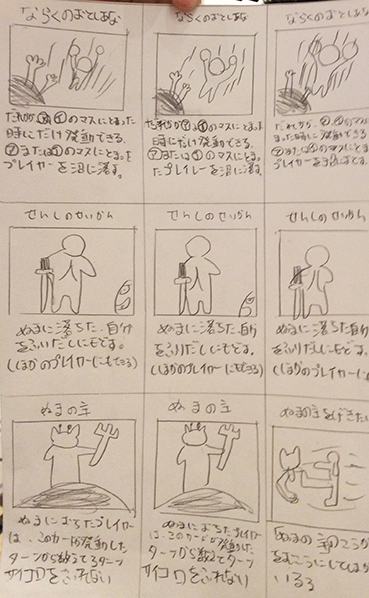 ならくのおとしあな
ならくのおとしあな
ならくのおとしあな
のマスにとまった
時にだけ発動できる。
または のマスにとまった
プレイヤーを沼に落す。
のマスにとまった
時にだけ発動できる。
または のマスにとまっ
たプレイヤーを沼に落す。
だれかが
時に発動できる
または のマスにとまった
プレイヤーを
せんしのせいかん
せんしのせいかん
せんしのせいかん
ぬまに落ちた、自分
をふりだしにもどす。
(ほかのプレイヤーにもできる)
ぬまに落ちた、自分
をふりだしにもどす。
(ほかのプレイヤーにもできる)
ぬまに落ちた、自分
をふりだしにもどす。
(ほかのプレイヤーに
ぬまの主
ぬまの主
ぬまの主をげきたい
ぬまにおちたプレイヤー
は、このカードが発動した
ターンから数えて ターン
サイコロをふれない
ぬまにおちたプレイヤー
は、このカードが発動した
ターンから数えて ターン
サイコロをふれない
ぬまの主